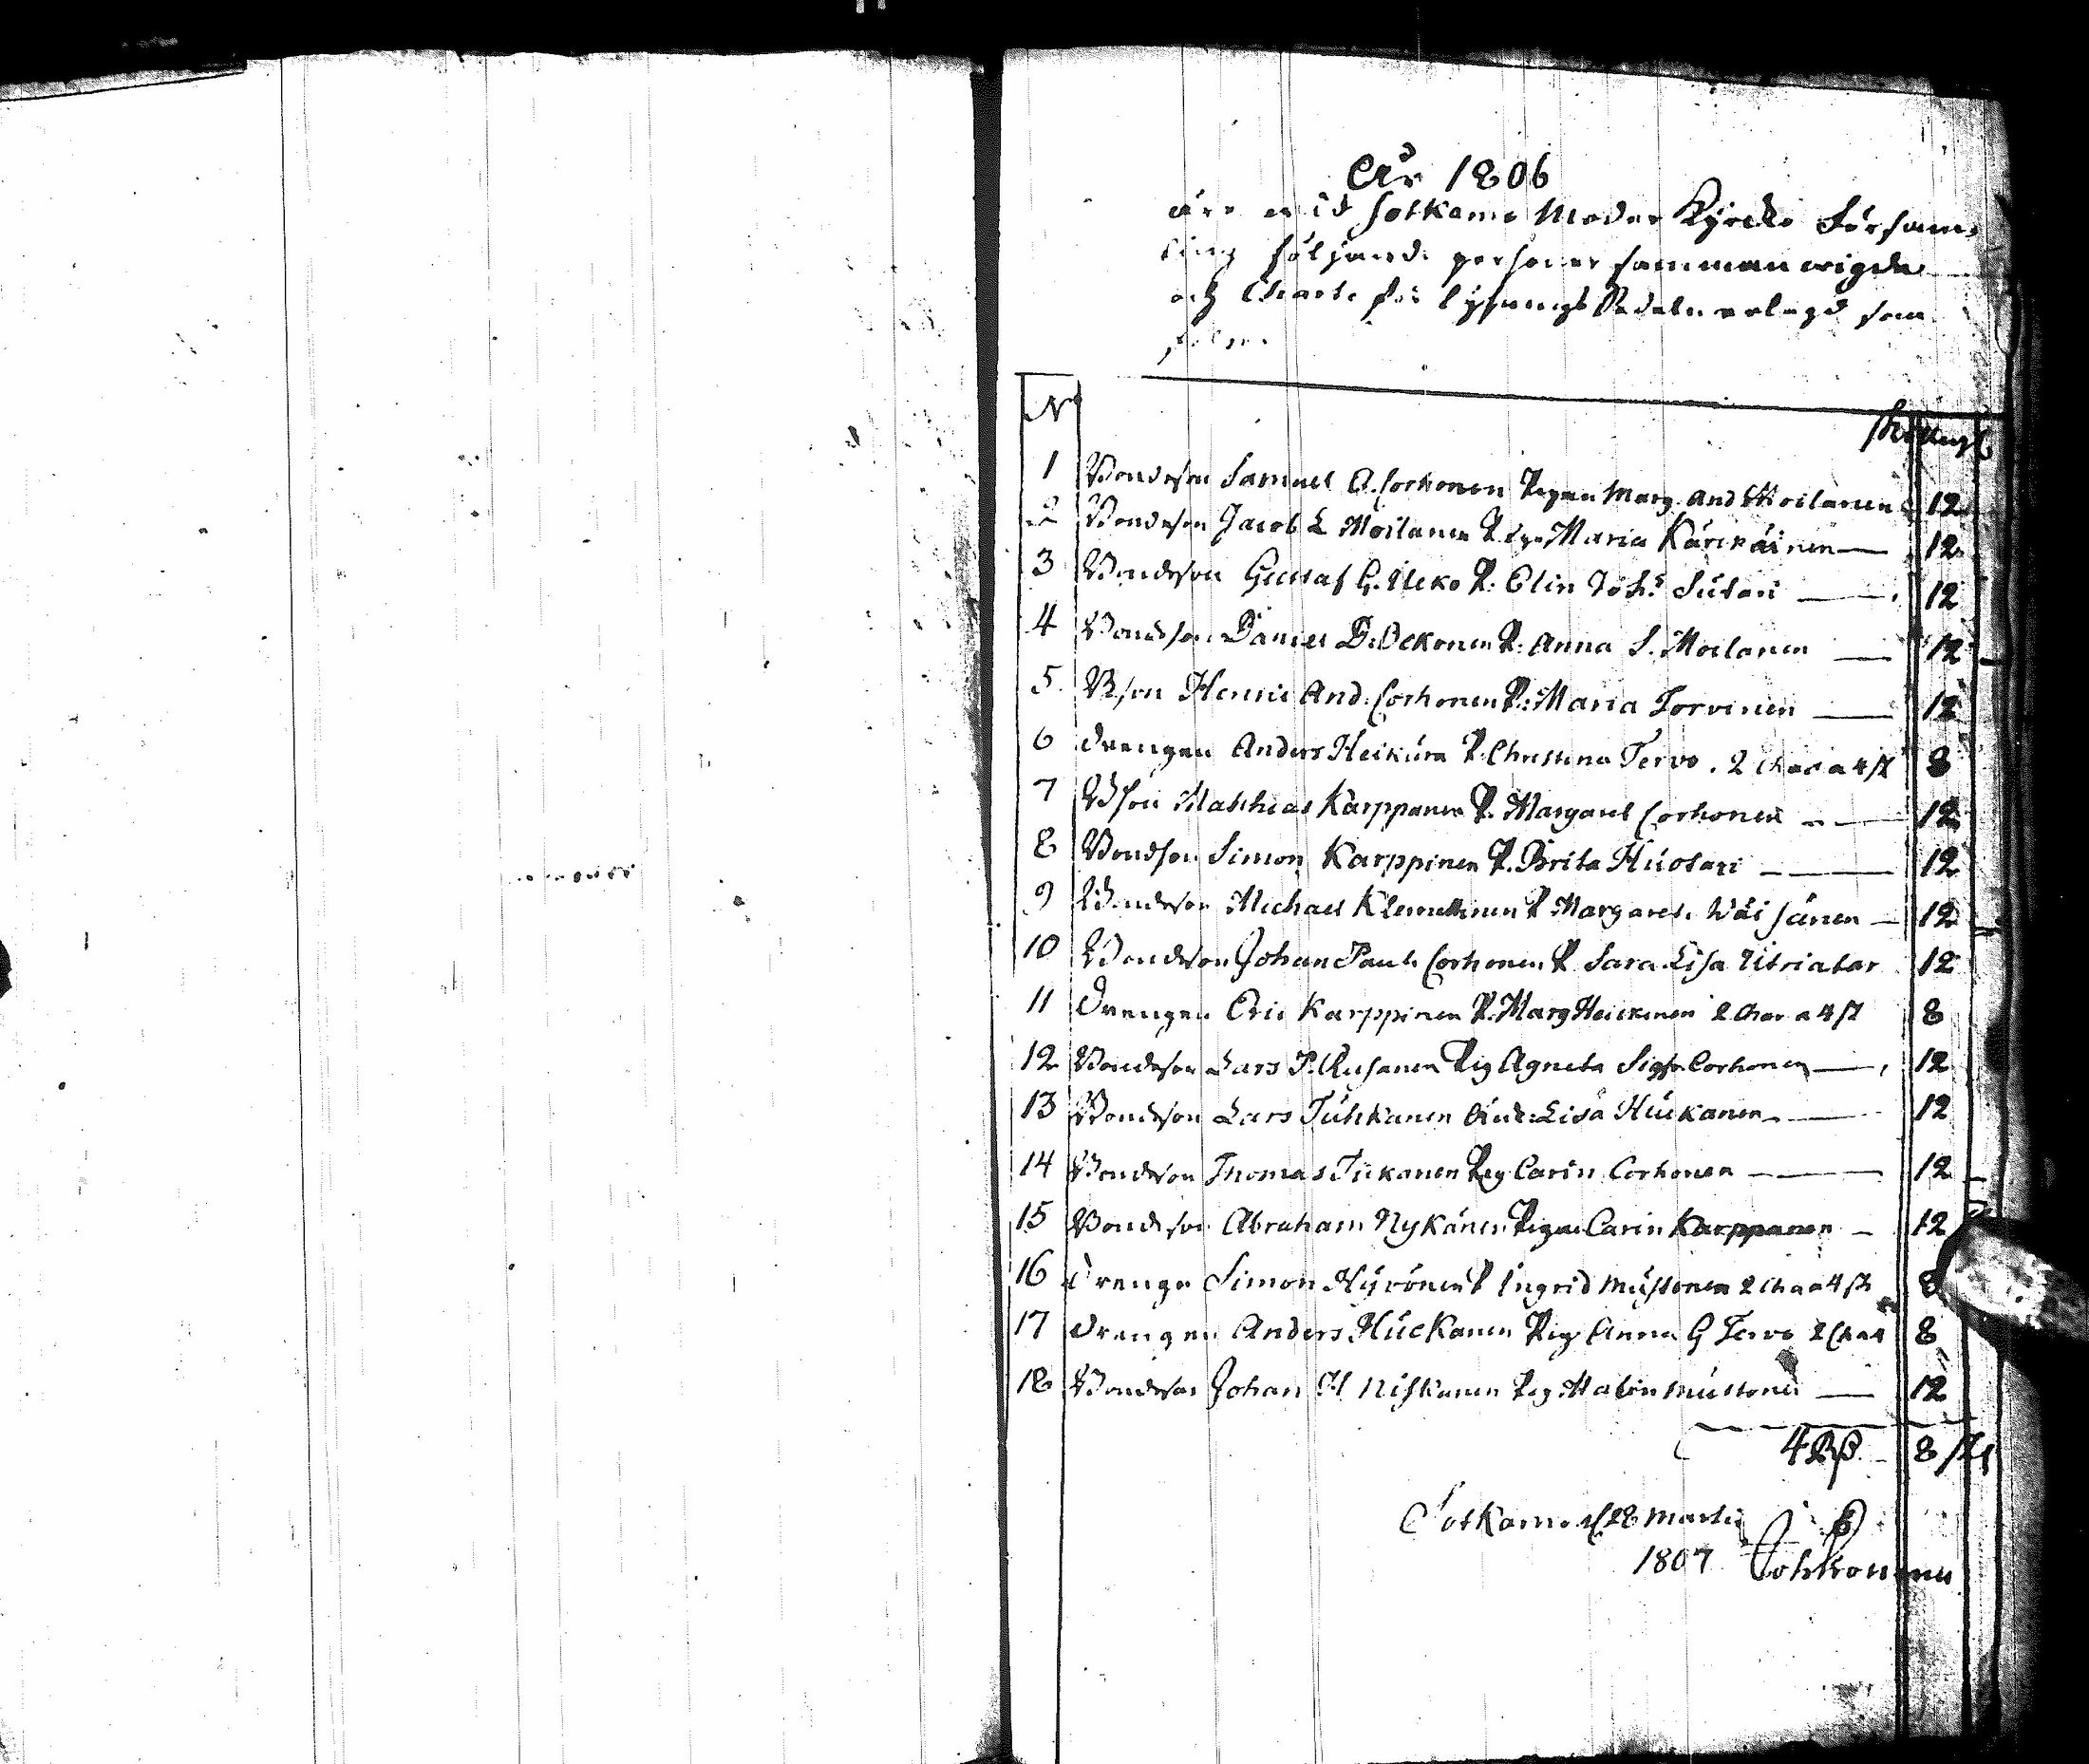 År 1806
äro wid Sotkamo Moder Kyrcko Försam-
ling följande personer samman wigde
och Charta för lysnings Sedeln erlagd som
följer
N
1 Bondeson Samuel A. Corhonen Pigan Marg. And Moilanen 12
2 Bondeson Jacob L Moilanen P. Maria Kärckäinen 12
3 Bondeson Gustaf G. P: Elin Joh: Sutari 12
4 Bondeson Daniel D: Ockonen P: Anna S. Moilanen 12
5. Bson Henric And: Corhonen P: Maria Torvinen 12
6 Drengen Anders Heikura P. Christina Tervo. 2 Char a 4 sk 8
7 Bson Matthias Karppanen P. Margaret Corhonen 12
8 Bondson Simon Karppinen P. Brita Huotari 12
9 Bondeson Michael Klemettinen P Margaret. Wäisänen 12
10 Bondeson Johan Pauls Corhonen P. Sara Lisa Utriatar 12
11 Drengen Eric Karppinen P. Marg Heickinen 2 Char a 4 sk 8
12 Bondeson Lars P. Rusanen Pig Agneta Sigfr Corhonen 12
13 Bondeson Lars Tuhkanen Lisa Huckanen 12
14 Bondeson Thomas Pig Carin Corhonen 12
15 Bondeson Abraham Nykänen Pigan Carin Karppanen 12
16 Drengen Simon Hyvönen P Ingrid Mustonen 2 Cha a 4 sk 8
17 Drengen Anders Huckanen Pig Anna G Tervo 2 Ch a 4 8
18 Bondeson Johan H Niskanen Pig. Malin Mustonen 12
4 R 8 sk
Sotkamo d 28 Martii
1807